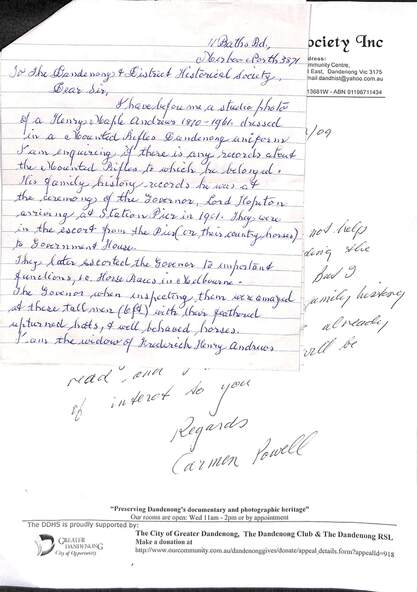 11 Baths Rd,
Mirboo North 3871
To The Dandenong & District Historical Society,
Dear Sir,
I have before me a studio photo
of a Henry Maple Andrews 1870-1961 dressed
in a Mounted Rifles Dandenong uniform
I am enquiring if there is any records about
the Mounted Rifles to which he belonged.
His family history records he was at
the ceremony of the Governor, Lord Hopton
arriving at Station Pier in 1901. They were
in the escort from the Pier (on their country horses)
to Government House.
They later escorted the Govenor to important
functions, i.e. Horse Races in Melbourne.
The Govenor when inspecting them were amazed
at these tall men (6ft) with their feathered
upturned hats, & well behaved horses.
I am the widow of Frederick Henry Andrews
ociety Inc
dress:
mmunity Centre,
l East, Dandenong Vic 3175
mail dandhist@yahoo.com.au
13681W - ABN 01198711434
/09
not help
ding the
But I
family history
already
will be
read and
of interest to you
Regards
Carmen Powell
"Preserving Dandenong's documentary and photographic heritage"
Our rooms are open: Wed 11am - 2pm or by appointment
The DDHS is proudly supported by:
GREATER DANDENONG
City of Opportunity
The City of Greater Dandenong, The Dandenong Club & The Dandenong RSL
Make a donation at
http://www.ourcommunity.com.au/dandenonggives/donate/appeal_details.form?appealId=918